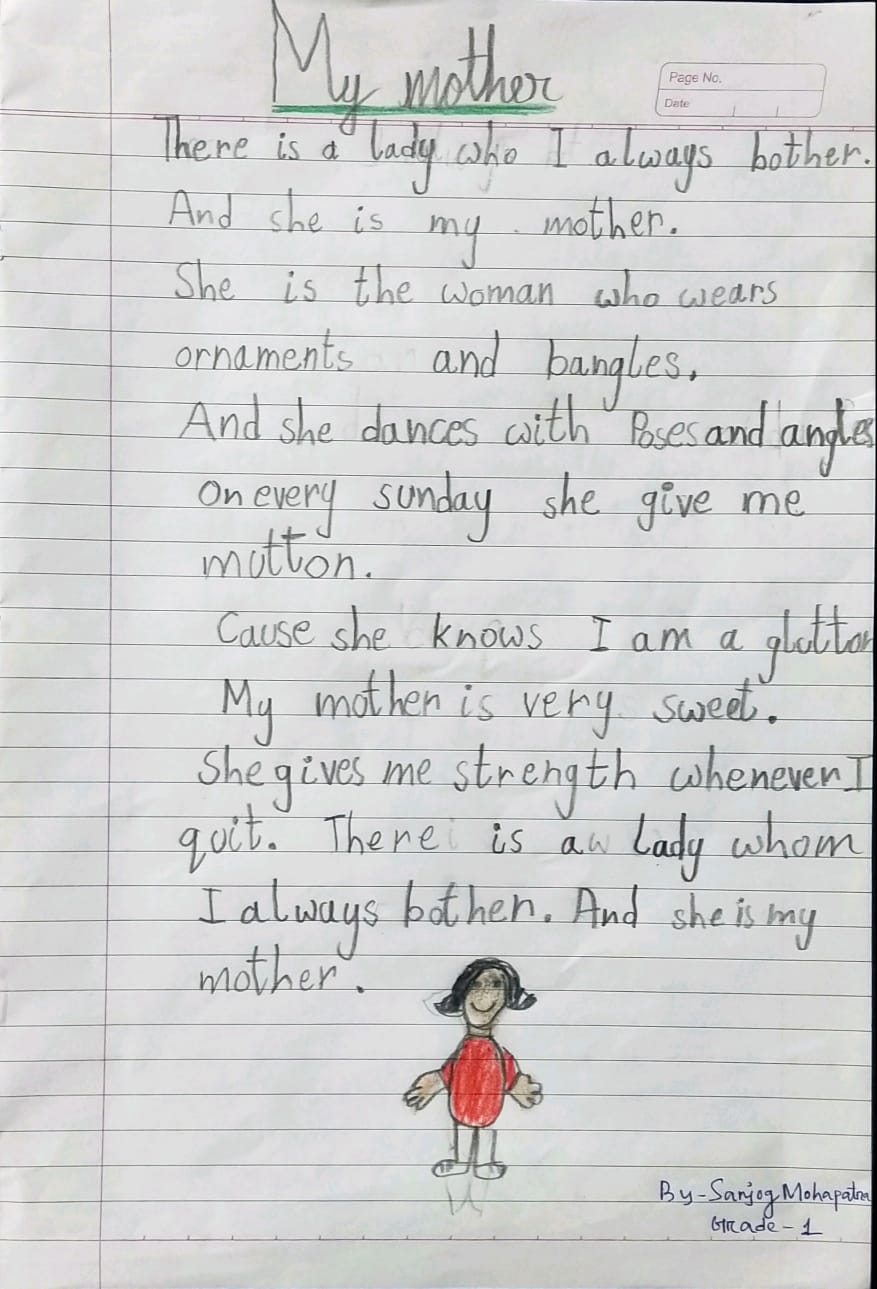 My mother
Page No.
Date
There is a lady who I always bother.
And she is my mother.
She is the woman who wears
ornaments and bangles.
And she dances with Poses and angles
On every sunday she give me
mutton.
Cause she knows I am a glutton
My mother is very sweet.
She gives me strength whenever I
quit. There is a lady whom
I always bother. And she is my
mother.
By - Sanjog Mohapatra
Grade - 1